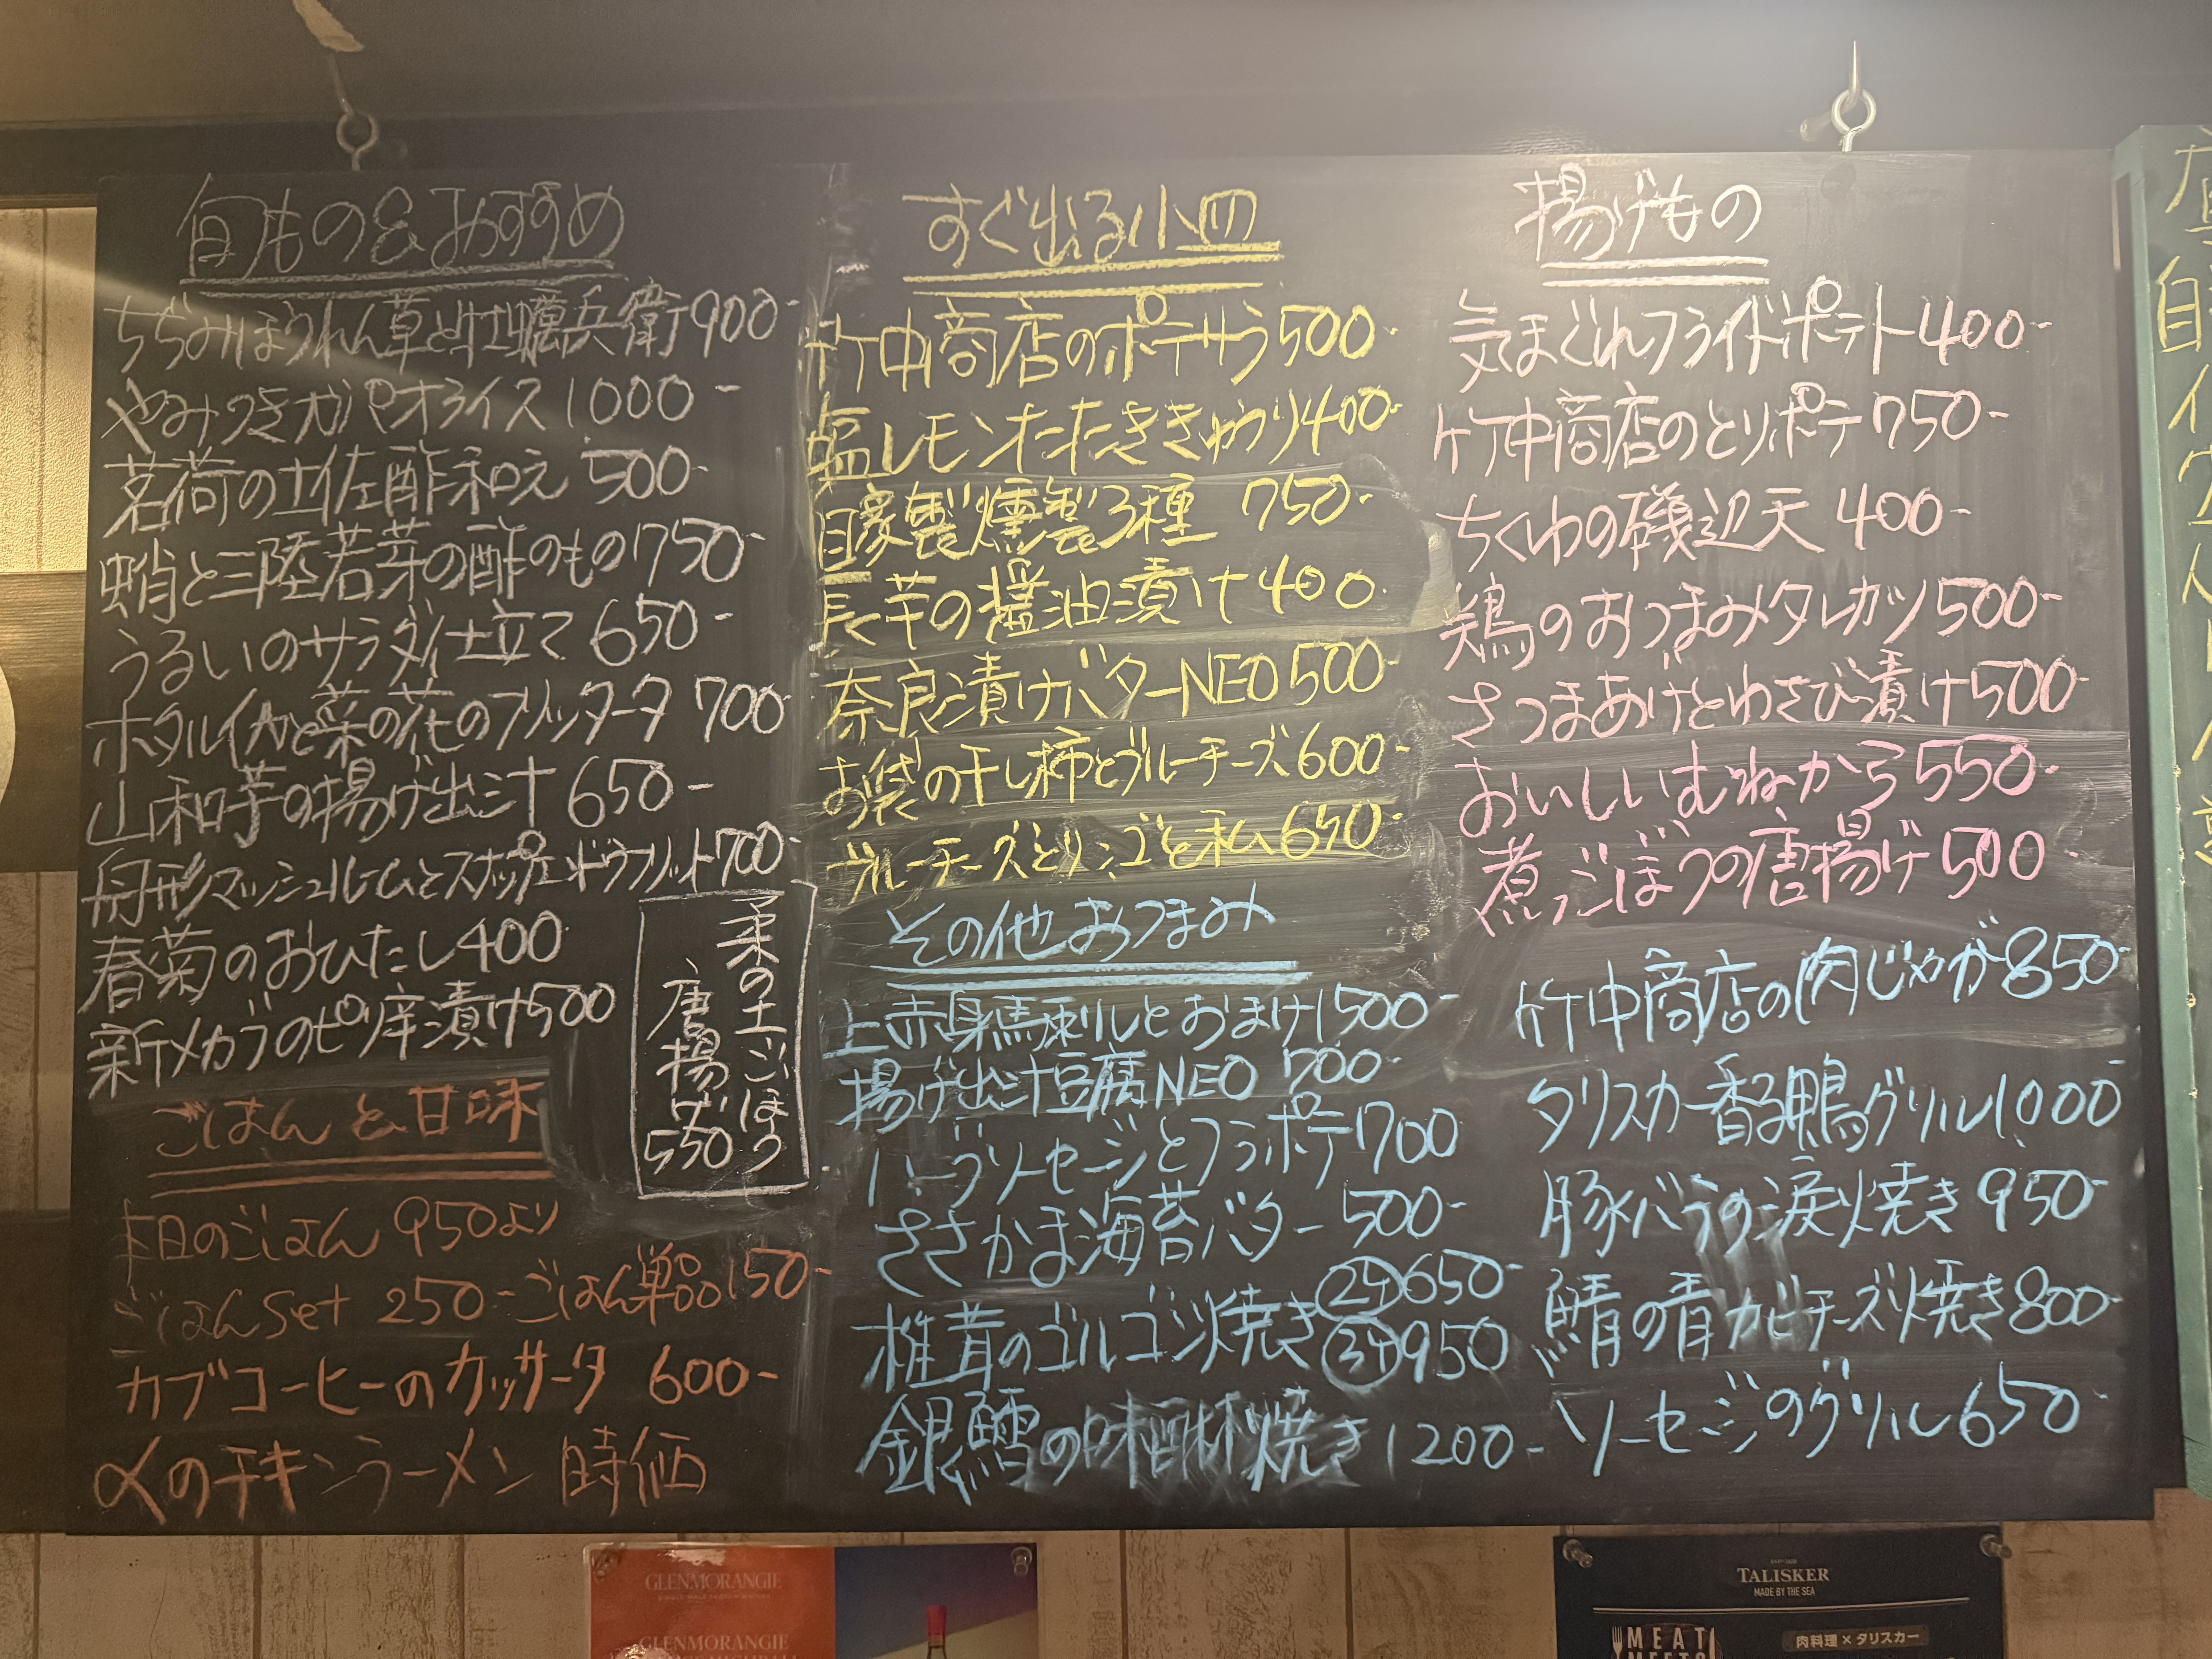 旬もの&おすすめ
ちぢみほうれん草と牡蠣兵衛900-
やみつきガパオライス1000-
茗荷の土佐酢和え 500-
蛸と三陸若芽の酢のもの750-
うるいのサラダ仕立て650-
ホタルイカと菜の花のフリッタータ 700-
山和芋の揚げ出汁 650-
舟形マッシュルームとスナップエンドウフリット700-
春菊のおひたし400
新メカブのピリ辛漬け500
菜の土ごぼう
唐揚げ
550
ごはんと甘味
本日のごはん 950より
ごはんSet 250-ごはん単品150-
カブコーヒーのカッサータ 600-
〆のチキンラーメン 時価
すぐ出る小皿
竹中商店のポテサラ500-
塩レモンたたききゅうり400-
自家製燻製3種 750-
長芋の醤油漬け400
奈良漬けバターNEO500-
お袋の干し柿とブルーチーズ600-
ブルーチーズとリンゴと私650-
その他おつまみ
上赤身馬刺しとおまけ1500-
揚げ出汁豆腐NEO 700-
ハーブソーセージとフラポテ700
ささかま海苔バター500-
椎茸のゴルゴンゾ焼き 2ケ 650-
3ケ 950
銀鱈の味醂焼き1200-
揚げもの
気まぐれフライドポテト400-
竹中商店のとりポテ750-
ちくわの磯辺天 400-
鶏のおつまみタレカツ500-
さつまあげとわさび漬け500-
おいしいむねから550-
煮ごぼうの唐揚げ500
竹中商店の肉じゃが850-
タリスカー香る鴨グリル1000
豚バラの涙焼き 950-
鯖の青カビチーズ焼き800-
ソーセージのグリル650-
GLENMORANGIE
GLENMORANGIE
TALISKER
MADE BY THE SEA
MEAT
MEETS
肉料理×タリスカー